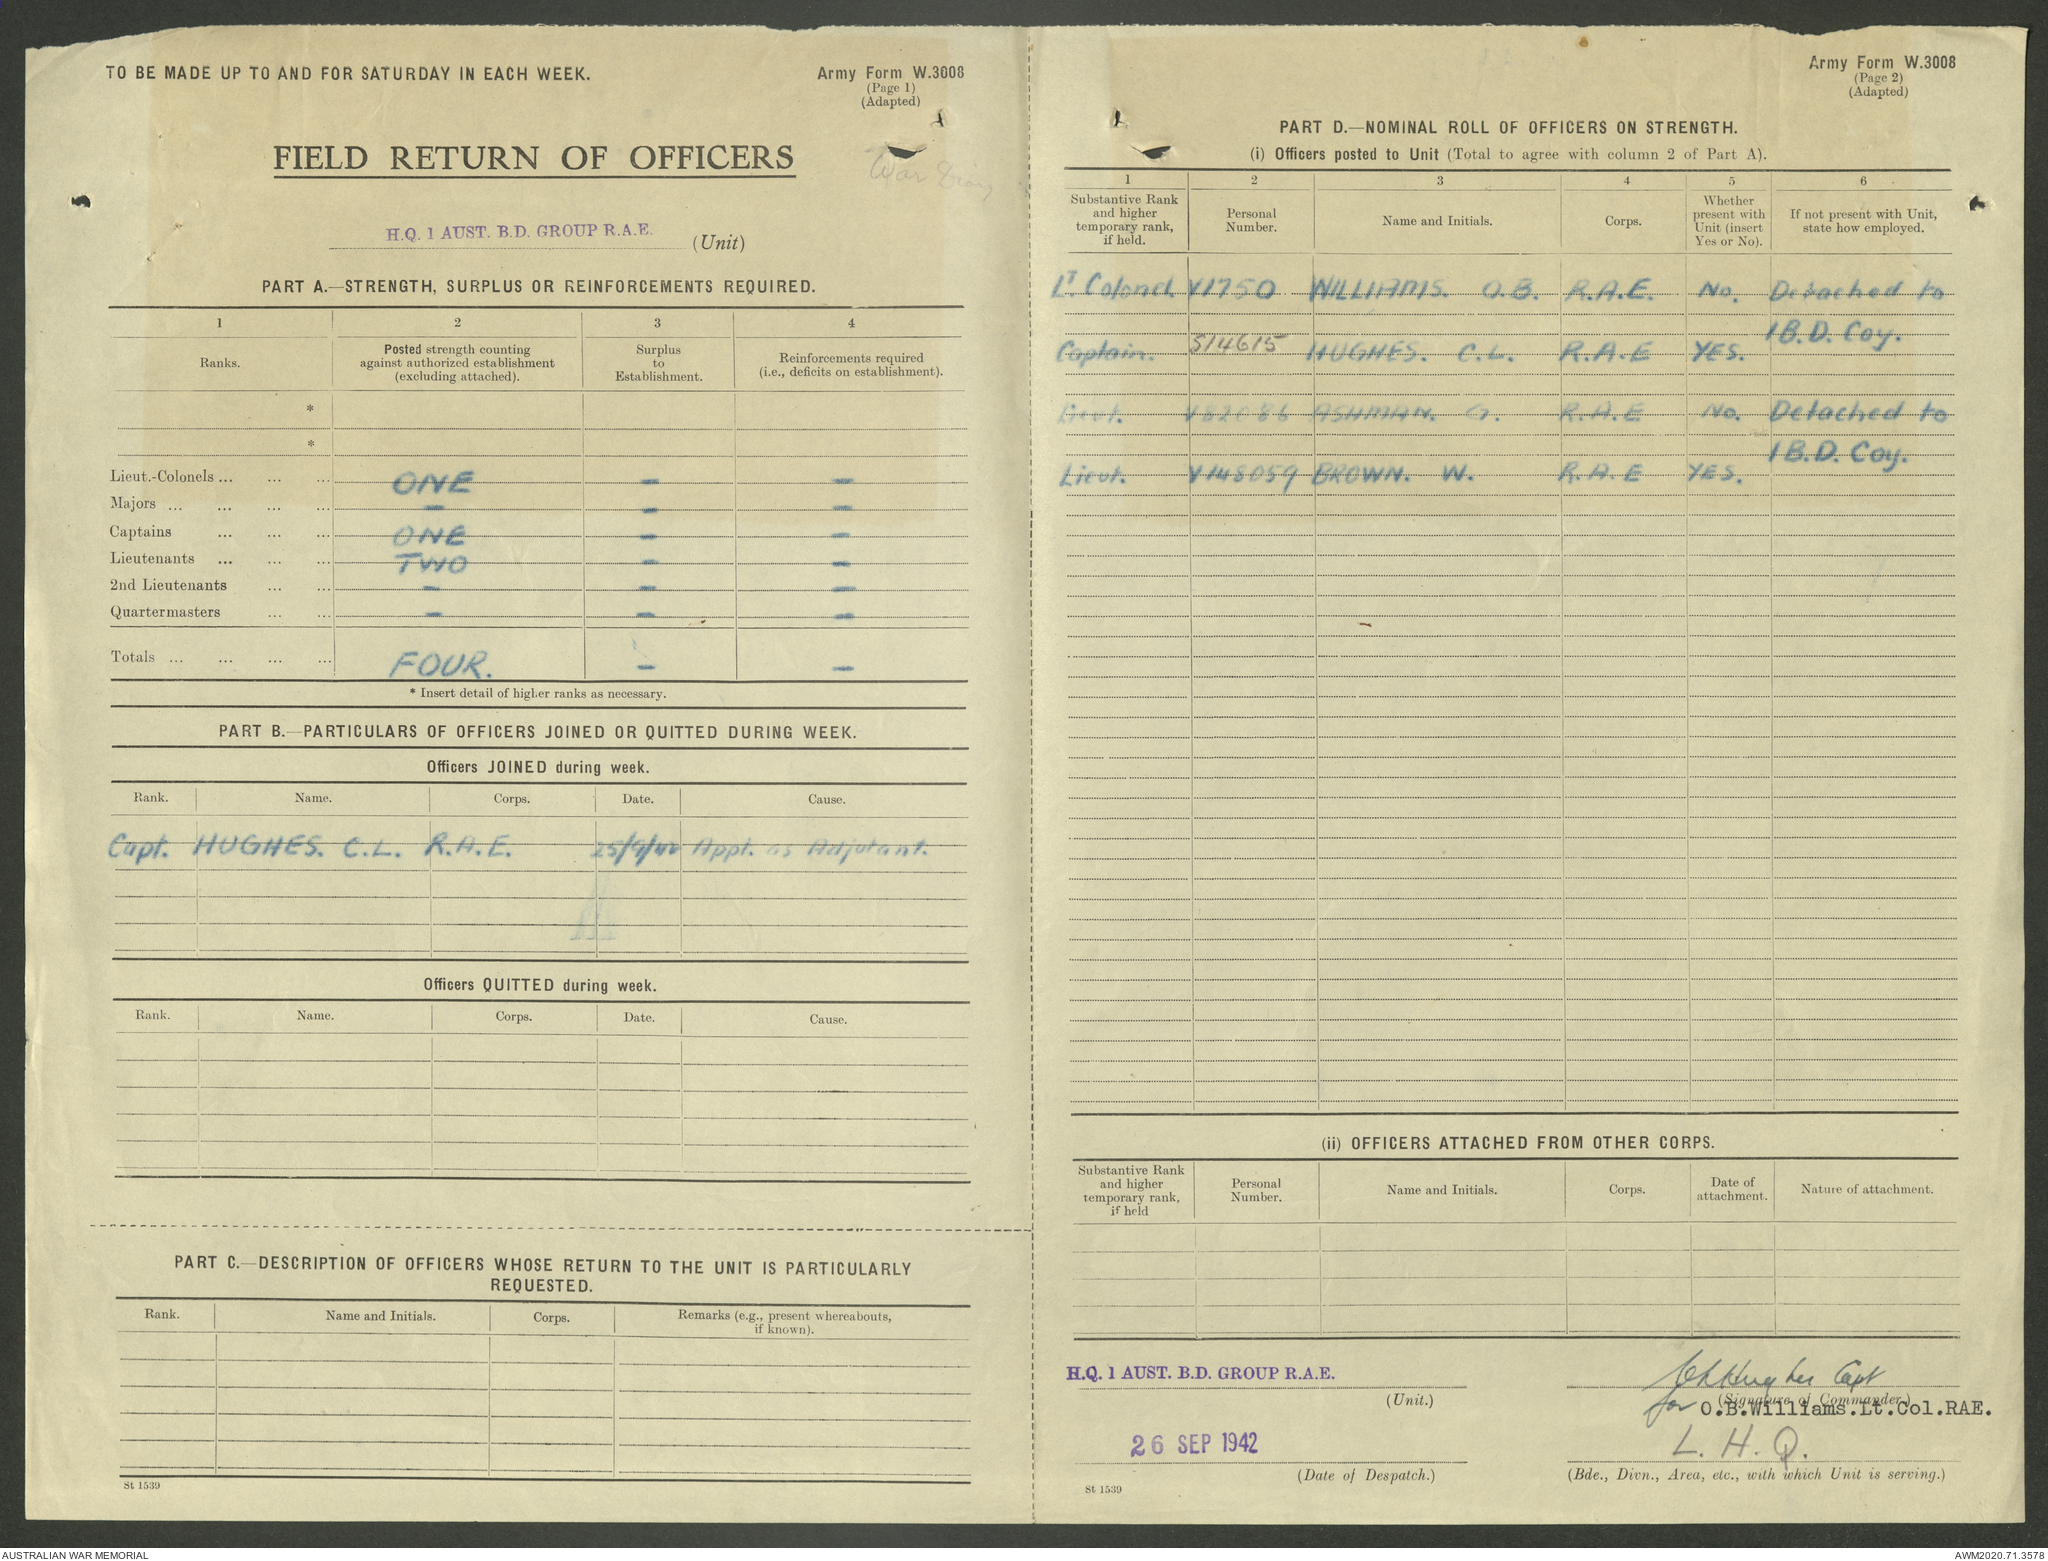 TO BE MADE UP TO AND FOR SATURDAY IN EACH WEEK.
Army Form W.3008
(Page 1)
(Adapted)
FIELD RETURN OF OFFICERS
War Diary
H.Q. 1 AUST. B.D. GROUP R.A.E. (Unit)
PART A.—STRENGTH, SURPLUS OR REINFORCEMENTS REQUIRED.
1 2 3 4
Ranks. Posted strength counting against authorized establishment (excluding attached). Surplus to Establishment. Reinforcements required (i.e., deficits on establishment).
*
*
Lieut.-Colonels ... ... ... ONE - -
Majors ... ... ... ... - - -
Captains ... ... ... ONE - -
Lieutenants ... ... ... TWO - -
2nd Lieutenants ... ... - - -
Quartermasters ... ... - - -
Totals ... ... ... ... FOUR. - -
* Insert detail of higher ranks as necessary.
PART B.—PARTICULARS OF OFFICERS JOINED OR QUITTED DURING WEEK.
Officers JOINED during week.
Rank. Name. Corps. Date. Cause.
Capt. HUGHES. C.L. R.A.E. 25/9/42 Appt. as Adjutant.
Officers QUITTED during week.
Rank. Name. Corps. Date. Cause.
PART C.—DESCRIPTION OF OFFICERS WHOSE RETURN TO THE UNIT IS PARTICULARLY
REQUESTED.
Rank. Name and Initials. Corps. Remarks (e.g., present whereabouts, if known).
St 1539
Army Form W.3008
(Page 2)
(Adapted)
PART D.—NOMINAL ROLL OF OFFICERS ON STRENGTH.
(i) Officers posted to Unit (Total to agree with column 2 of Part A).
1 2 3 4 5 6
Substantive Rank and higher temporary rank, if held. Personal Number. Name and Initials. Corps. Whether present with Unit (insert Yes or No). If not present with Unit, state how employed.
Lt Colonel V1750 WILLIAMS. O.B. R.A.E. No. Detached to
1 B.D. Coy.
Captain. S14615 HUGHES. C.L. R.A.E YES.
Lieut. V82086 ASHMAN. G. R.A.E No. Detached to
1 B.D. Coy.
Lieut. V148059 BROWN. W. R.A.E YES.
(ii) OFFICERS ATTACHED FROM OTHER CORPS.
Substantive Rank and higher temporary rank, if held Personal Number. Name and Initials. Corps. Date of attachment. Nature of attachment.
H.Q. 1 AUST. B.D. GROUP R.A.E.
(Unit.)
CLHughes Capt
(Signature of Commander.)
for O.B.Williams.Lt.Col.RAE.
26 SEP 1942
(Date of Despatch.)
L. H. Q.
(Bde., Divn., Area, etc., with which Unit is serving.)
St 1539
AUSTRALIAN WAR MEMORIAL
AWM2020.71.3578